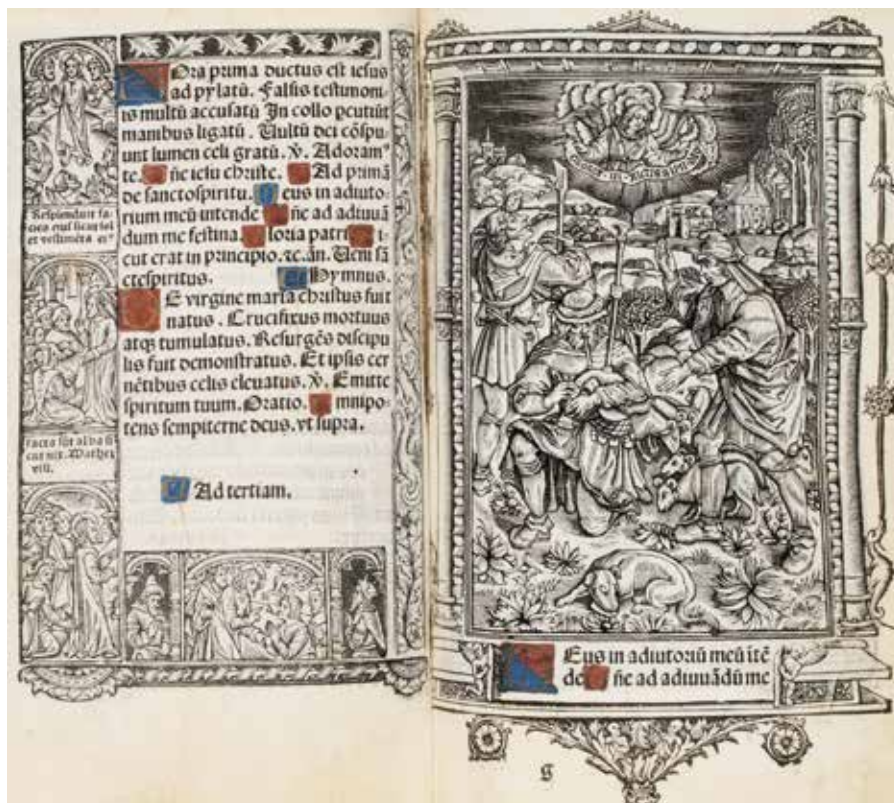 Resplenduit fa
cies eius sicut sol
et vestimēta eiꝰ
facta sūt alba si
cut nix. Mathei
Ora prima ductus est iesus
ad pylatū. Falsis testimoni
is multū accusatū In collo pcutiūt
manibus ligatū. Vultū dei cōspu
unt lumen celi gratū. v̄. Adoram⁹
te. ñe iesu christe. Ad primā
de sanctospiritu. eus in adiuto
rium meū intende ñe ad adiuuā
dum me festina. loria patri i
cut erat in principio. ⁊c. an̄. Ueni sā
ctespiritus. Hymnus.
E virgine maria christus fuit
natus. Crucifixus mortuus
atqꝫ tumulatus. Resurgēs discipu
lis fuit demonstratus. Et ipsis cer
nētibus celis eleuatus. v̄. Emitte
spiritum tuum. Oratio. mnipo-
tens sempiterne deus. vt supra.
Ad tertiam.
Eus in adiutoriū meū ītē
de ñe ad adiuuādū me
g